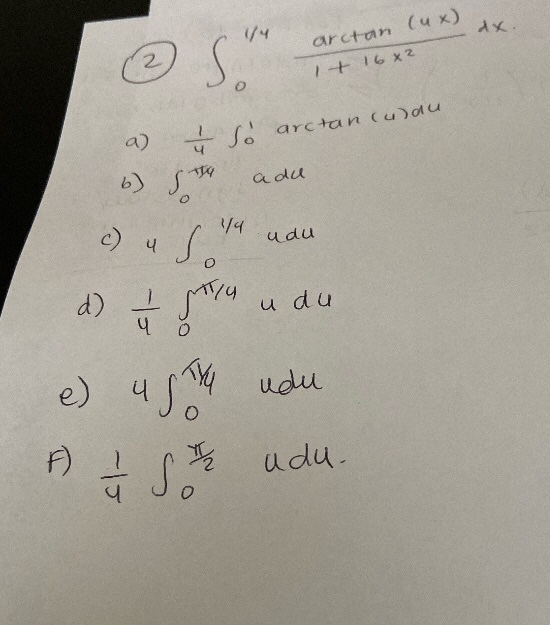 ② ∫₀^1/4 arctan (4x) / 1 + 16x² dx.
a) 1/4 ∫₀^1 arctan (u) du
b) ∫₀^π/4 u du
c) 4 ∫₀^1/4 u du
d) 1/4 ∫₀^π/4 u du
e) 4 ∫₀^π/4 u du
F) 1/4 ∫₀^π/2 u du.